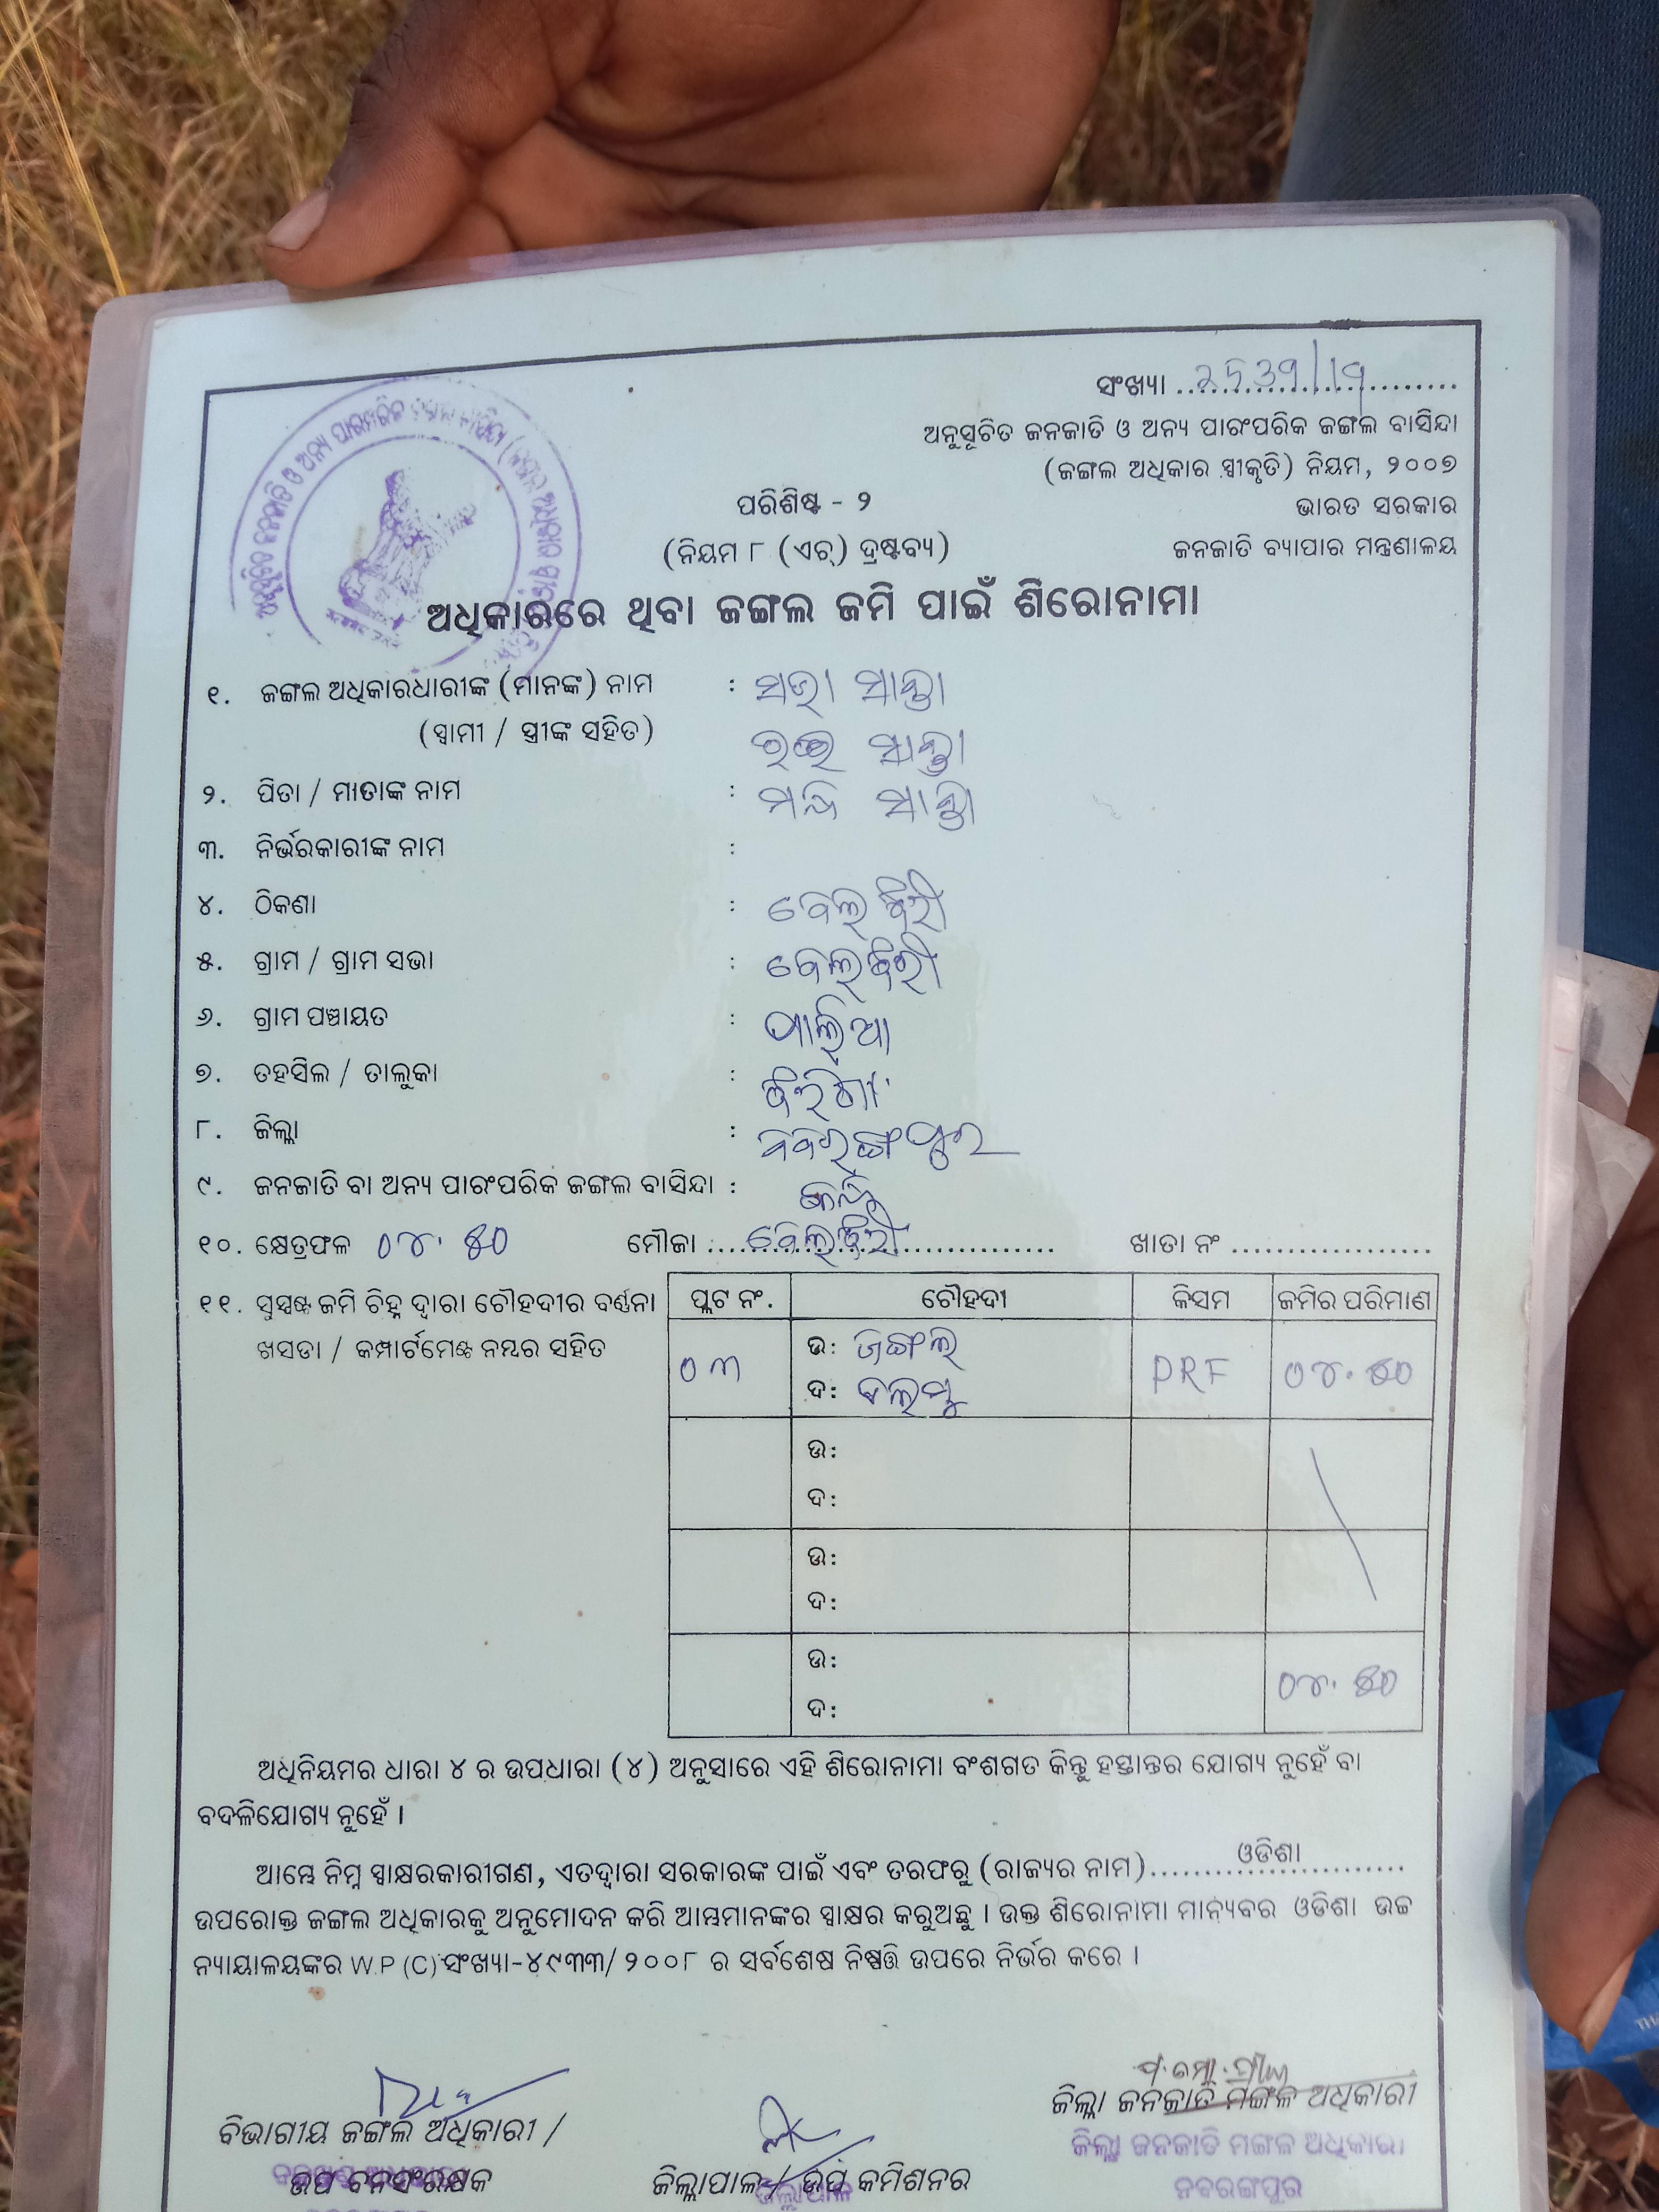 ସଂଖ୍ୟା ........................
ଅନୁସୂଚିତ ଜନଜାତି ଓ ଅନ୍ୟ ପାରଂପରିକ ଜଙ୍ଗଲ ବାସିନ୍ଦା
(ଜଙ୍ଗଲ ଅଧିକାର ସ୍ୱୀକୃତି) ନିୟମ, ୨୦୦୭
ପରିଶିଷ୍ଟ - ୨ ଭାରତ ସରକାର
(ନିୟମ ୮ (ଏଚ୍) ଦ୍ରଷ୍ଟବ୍ୟ) ଜନଜାତି ବ୍ୟାପାର ମନ୍ତ୍ରଣାଳୟ
ଅଧିକାରରେ ଥିବା ଜଙ୍ଗଲ ଜମି ପାଇଁ ଶିରୋନାମା
୧. ଜଙ୍ଗଲ ଅଧିକାରଧାରୀଙ୍କ (ମାନଙ୍କ) ନାମ :
(ସ୍ୱାମୀ / ସ୍ତ୍ରୀଙ୍କ ସହିତ)
୨. ପିତା / ମାତାଙ୍କ ନାମ :
୩. ନିର୍ଭରକାରୀଙ୍କ ନାମ :
୪. ଠିକଣା : ବେଲଝିରୀ
୫. ଗ୍ରାମ / ଗ୍ରାମ ସଭା : ବେଲଝିରୀ
୬. ଗ୍ରାମ ପଞ୍ଚାୟତ : ପାଲିଆ
୭. ତହସିଲ / ତାଲୁକା : ଝରିଗାଁ
୮. ଜିଲ୍ଲା : ନବରଙ୍ଗପୁର
୯. ଜନଜାତି ବା ଅନ୍ୟ ପାରଂପରିକ ଜଙ୍ଗଲ ବାସିନ୍ଦା :
୧୦. କ୍ଷେତ୍ରଫଳ ୦୪.୫୦ ମୌଜା ..... ବେଲଝିରୀ ..... ଖାତା ନଂ ..................
୧୧. ସୁସ୍ପଷ୍ଟ ଜମି ଚିହ୍ନ ଦ୍ୱାରା ଚୌହଦୀର ବର୍ଣ୍ଣନା
ଖସଡା / କମ୍ପାର୍ଟମେଣ୍ଟ ନମ୍ବର ସହିତ
ପ୍ଲଟ ନଂ. ଚୌହଦୀ କିସମ ଜମିର ପରିମାଣ
୦୩ ଉ: ଜଙ୍ଗଲ PRF ୦୪.୫୦
ଦ:
ଉ:
ଦ:
ଉ:
ଦ:
ଉ: ୦୪.୫୦
ଦ:
ଅଧିନିୟମର ଧାରା ୪ ର ଉପଧାରା (୪) ଅନୁସାରେ ଏହି ଶିରୋନାମା ବଂଶଗତ କିନ୍ତୁ ହସ୍ତାନ୍ତର ଯୋଗ୍ୟ ନୁହେଁ ବା
ବଦଳିଯୋଗ୍ୟ ନୁହେଁ ।
ଆମ୍ଭେ ନିମ୍ନ ସ୍ୱାକ୍ଷରକାରୀଗଣ, ଏତଦ୍ୱାରା ସରକାରଙ୍କ ପାଇଁ ଏବଂ ତରଫରୁ (ରାଜ୍ୟର ନାମ)........ ଓଡିଶା ........
ଉପରୋକ୍ତ ଜଙ୍ଗଲ ଅଧିକାରକୁ ଅନୁମୋଦନ କରି ଆମ୍ଭମାନଙ୍କର ସ୍ୱାକ୍ଷର କରୁଅଛୁ । ଉକ୍ତ ଶିରୋନାମା ମାନ୍ୟବର ଓଡିଶା ଉଚ୍ଚ
ନ୍ୟାୟାଳୟଙ୍କର W.P (C) ସଂଖ୍ୟା-୪୯୩୩/୨୦୦୮ ର ସର୍ବଶେଷ ନିଷ୍ପତ୍ତି ଉପରେ ନିର୍ଭର କରେ ।
ବିଭାଗୀୟ ଜଙ୍ଗଲ ଅଧିକାରୀ /
ଉପ ବନସଂରକ୍ଷକ
ଜିଲ୍ଲାପାଳ / ଉପ କମିଶନର
ଜିଲ୍ଲାପାଳ
ଜିଲ୍ଲା ଜନଜାତି ମଙ୍ଗଳ ଅଧିକାରୀ
ଜିଲ୍ଲା ଜନଜାତି ମଙ୍ଗଳ ଅଧିକାରୀ
ନବରଙ୍ଗପୁର